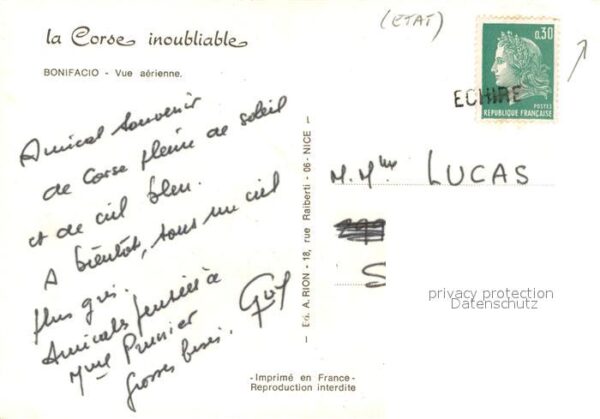 (ETAT)
la Corse inoubliable
BONIFACIO - Vue aérienne.
Amical souvenir
de Corse pleine de soleil
et de ciel bleu.
A bientôt, sous un ciel
plus gris.
Amicales pensées à
Mme Prunier
Grosses bises. Guy
Edi. A. RION - 18, rue Raiberti - 06 - NICE -
-Imprimé en France-
Reproduction interdite
0,30
POSTES
REPUBLIQUE FRANÇAISE
ECHIRE
M. Mme LUCAS
S
privacy protection
Datenschutz